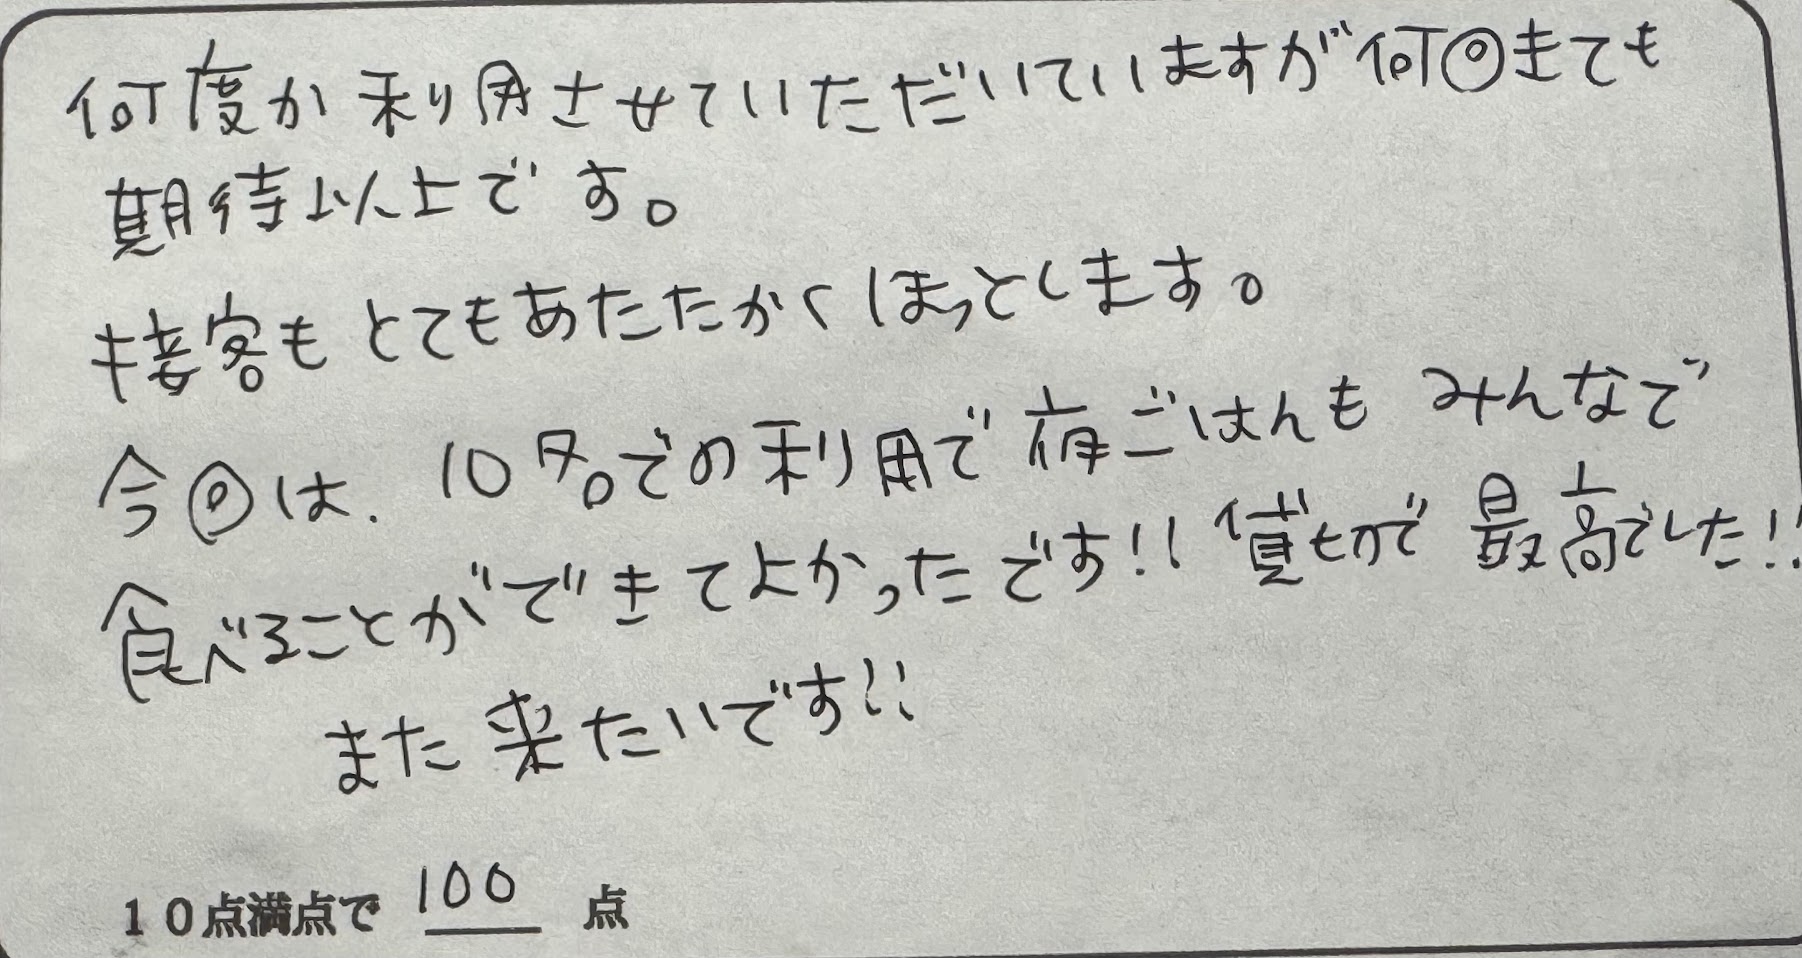 何度か利用させていただいていますが何回きても
期待以上です。
接客もとてもあたたかくほっとします。
今回は、10名での利用で夜ごはんもみんなで
食べることができてよかったです!! 値もので最高でした!!
また来たいです!!
10点満点で 100 点